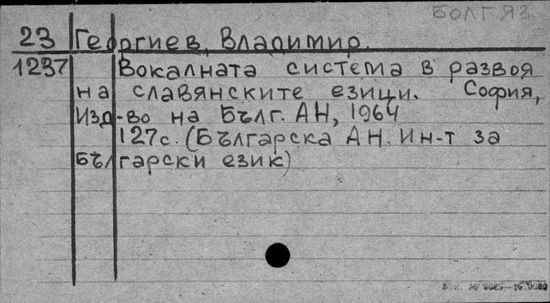 БОЛГ.ЯЗ
23 Георгиев, Владимир.
1237 Вокалната система в развоя
на славянските езици. София,
Изд-во на Бълг. АН, 1964
127с. (Българска АН. Ин-т за
български език)